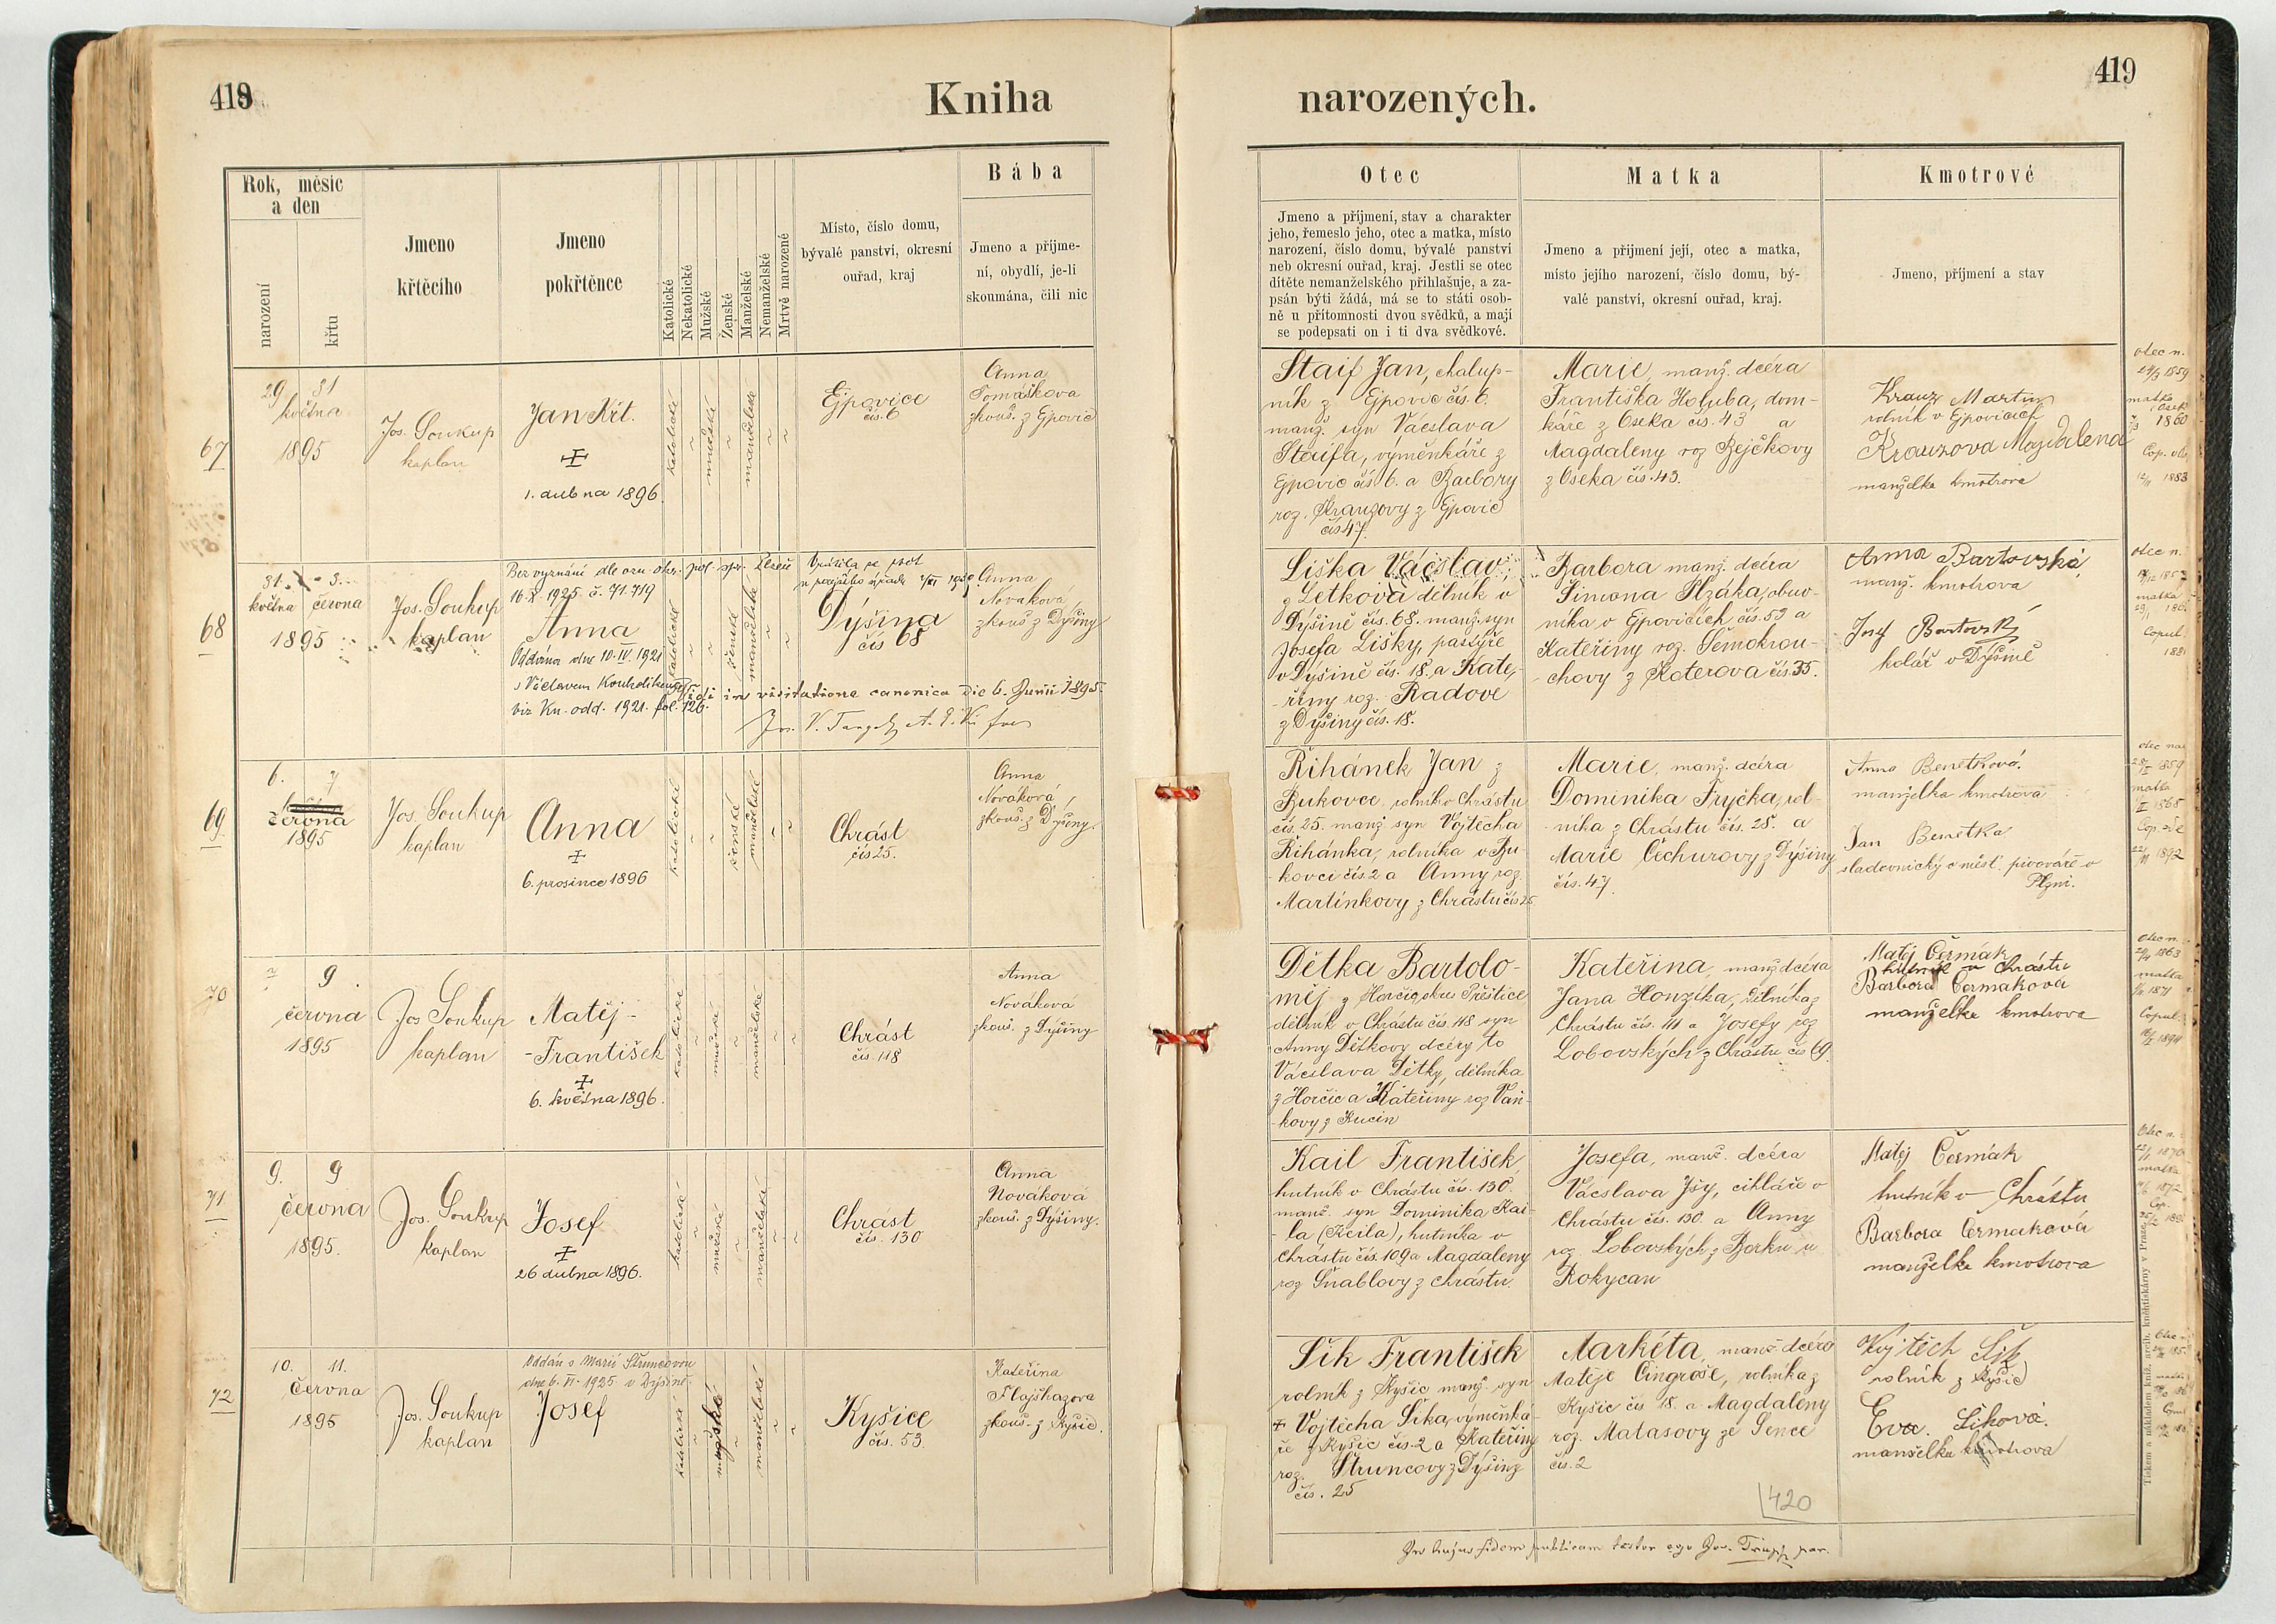 419
Kniha
Rok, měsíc
a den
narození
křtu
Jmeno
křtěcího
Jmeno
pokřtěnce
Katolické
Nekatolické
Mužské
Ženské
Manželské
Nemanželské
Mrtvě narozené
Místo, číslo domu,
bývalé panství, okresní
ouřad, kraj
Bába
Jmeno a příjme-
ní, obydlí, je-li
skoumána, čili nic
67
29 31
května
1895
Jos. Soukup
kaplan
Jan Křt.
1. dubna 1896.
katolické
mužské
manželské
Ejpovice
čís. 6
Anna
Tomášková
zkouš. z Ejpovic
68
31. 3.
května června
1895
Jos. Soukup
kaplan
Bez vyznání dle ozn. okr. pol. spr.
16. X. 1925 č. 71.719
Anna
Oddána dne 10. IV. 1921
s Václavem
viz Kn. odd. 1921. fol. 126.
katolické
ženské
manželské
Vrátila se
Dýšina
čís 68
Anna
Nováková
zkouš z Dýšiny
Vidi in visitatione canonica die 6. Junii 1895.
69
6. 7
června
1895
Jos. Soukup
kaplan
Anna
6. prosince 1896
katolické
ženské
manželské
Chrást
čís 25.
Anna
Nováková
zkouš. z Dýšiny.
70
7 9
června
1895
Jos Soukup
kaplan
Matěj-
-František
6. května 1896.
katolické
mužské
manželské
Chrást
čís. 118
Anna
Nováková
zkouš. z Dýšiny
71
9. 9
června
1895.
Jos. Soukup
kaplan
Josef
26 dubna 1896.
katolické
mužské
manželské
Chrást
čís. 130
Anna
Nováková
zkouš. z Dýšiny.
72
10. 11.
června
1895
Jos. Soukup
kaplan
Oddán s Marií Štruncovou
dne 6. VI. 1925 v Dýšině.
Josef
katolické
mužské
manželské
Kyšice
čís. 53.
Kateřina
Flajšhazova
zkouš. z Kyšic.
419
narozených.
Otec
Jmeno a příjmení, stav a charakter
jeho, řemeslo jeho, otec a matka, místo
narození, číslo domu, bývalé panství
neb okresní ouřad, kraj. Jestli se otec
dítěte nemanželského přihlašuje, a za-
psán býti žádá, má se to státi osob-
ně u přítomnosti dvou svědků, a mají
se podepsati on i ti dva svědkové.
Matka
Jmeno a přijmení její, otec a matka,
místo jejího narození, číslo domu, bý-
valé panství, okresní ouřad, kraj.
Kmotrové
Jmeno, příjmení a stav
Staif Jan, chalup-
ník z Ejpovic čís. 6.
manž. syn Václava
Staifa, výměnkáře z
Ejpovic čís 6. a Barbory
roz. Kranzovy z Ejpovic
čís 47.
Marie, manž. dcéra
Františka Holuba, dom-
káře z Oseka čís. 43 a
Magdaleny roz Bejčkovy
z Oseka čís. 43.
Kranz Martin
rolník v Ejpovicích
Kranzova Magdalena
manželka kmotrova
otec n.
24/3 1859
matka
1860
Cop.
1883
Liška Václav
z Letkova dělník v
Dýšině čís. 68. manž. syn
Josefa Lišky, pastýře
v Dýšině čís. 18. a Kate-
řiny roz. Radove
z Dýšiny čís. 18.
Barbora manž. dcéra
Šimona Hzáka, obuv-
níka v Ejpovicích čís. 53 a
Kateřiny roz. Semokrou-
-chovy z Koterova čís. 35.
Anna Bartovská,
manž. kmotrova
Josef Bartovský
kolář v Dýšině
otec n.
matka
Copul.
Řihánek Jan z
Bukovce, rolník v Chrástu
čís. 25. manž syn Vojtěcha
Řihánka, rolníka v Bu-
kovci čís. 2 a Anny roz.
Martínkovy z Chrástu čís 25
Marie, manž. dcéra
Dominika Fryčka, rol-
-níka z Chrástu čís. 28. a
Marie Čechurovy z Dýšiny
čís. 47.
Anna Benetková.
manželka kmotrova
Jan Benetka
sladovnický v měšť. pivováře v
Plzni.
1859
matka
1865
Cop. zde
1892
Dětka Bartolo-
měj z Horčic okres Přeštice
dělník v Chrástu čís. 118 syn
Anny Dětkovy dcéry to
Václava Dětky, dělníka
z Horčic a Kateřiny roz Vaň-
kovy z Kucin
Kateřina, manž dcéra
Jana Honzíka, dělníka z
Chrástu čís. 111 a Josefy roz
Lobovských z Chrástu čís 69.
Matěj Čermák
hutník v Chrástu
Barbora Čermáková
manželka kmotrova
otec n.
1863
matka
1871
Copul.
1894
Kail František,
hutník v Chrástu čís. 130.
manž. syn Dominika Kai-
-la (Keila), hutníka v
Chrástu čís. 109 a Magdaleny
roz Šnablovy z Chrástu.
Josefa, manž. dcéra
Václava Jšy, cihláře v
Chrástu čís. 130. a Anny
roz Lobovských z Borku u
Rokycan
Matěj Čermák
hutník v Chrástu
Barbora Čermaková
manželka kmotrova
Otec n.
matka
1872
Cop.
Šik František
rolník z Kyšic manž. syn
Vojtěcha Šika, výměnká-
ře z Kyšic čís. 2 a Kateřiny
roz. Štruncovy z Dýšiny
čís. 25
Markéta, manž. dcéra
Matěje Cingroše, rolníka z
Kyšic čís 18. a Magdaleny
roz. Matasovy ze Sence
čís. 2
Vojtěch Šik
rolník z Kyšic
Eva. Šiková.
manželka kmotrova
420
Tiskem a nákladem kníž. arcib. knihtiskárny v Praze
In hujus fidem publicam testor ego Jos.